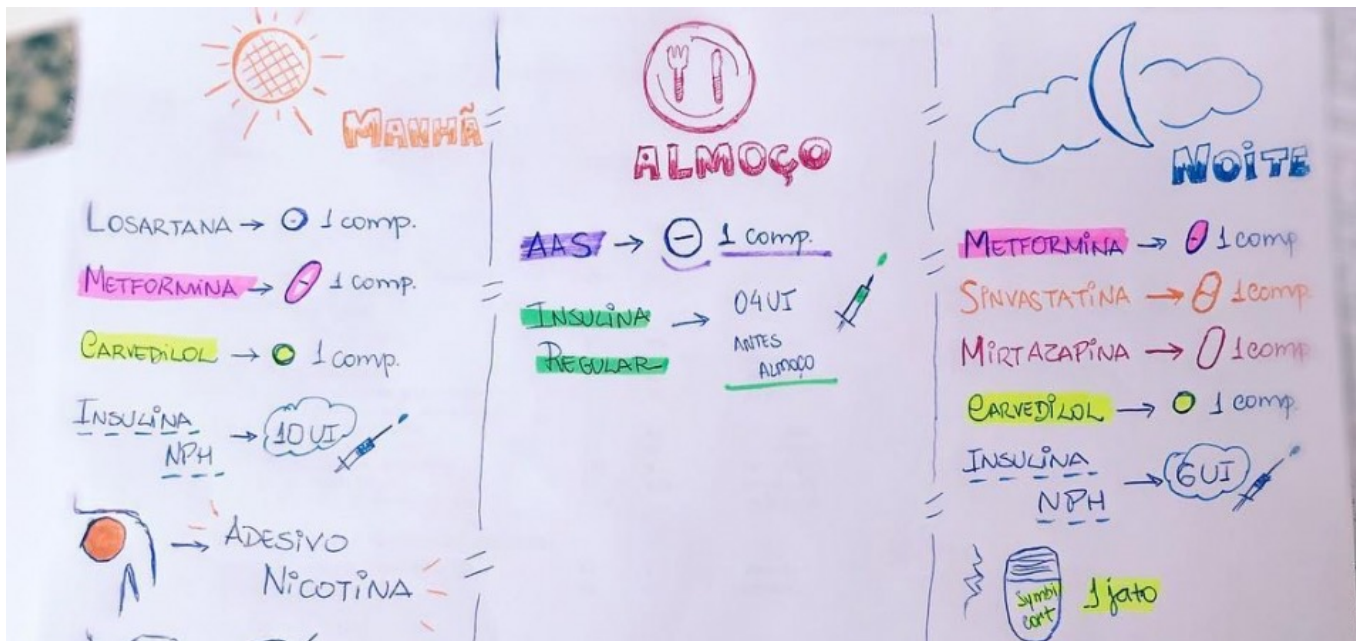 MANHÃ
LOSARTANA → 1 comp.
METFORMINA → 1 comp.
CARVEDILOL → 1 comp.
INSULINA
NPH → 10 UI
→ ADESIVO
NICOTINA
ALMOÇO
AAS → 1 comp.
INSULINA → 04 UI
REGULAR
ANTES
ALMOÇO
NOITE
METFORMINA → 1 comp
SINVASTATINA → 1 comp.
MIRTAZAPINA → 1 comp
CARVEDILOL → 1 comp.
INSULINA
NPH → 6 UI
Symbi
cort
1 jato